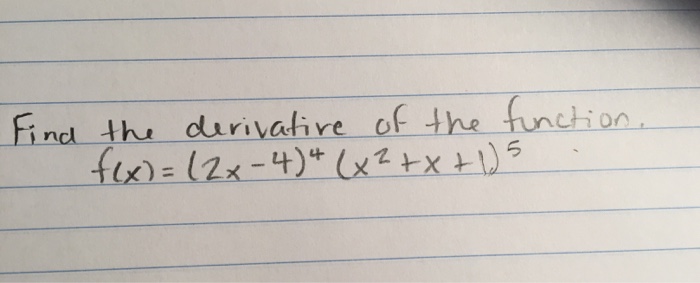 Find the derivative of the function.
f(x) = (2x-4)⁴ (x² + x + 1)⁵